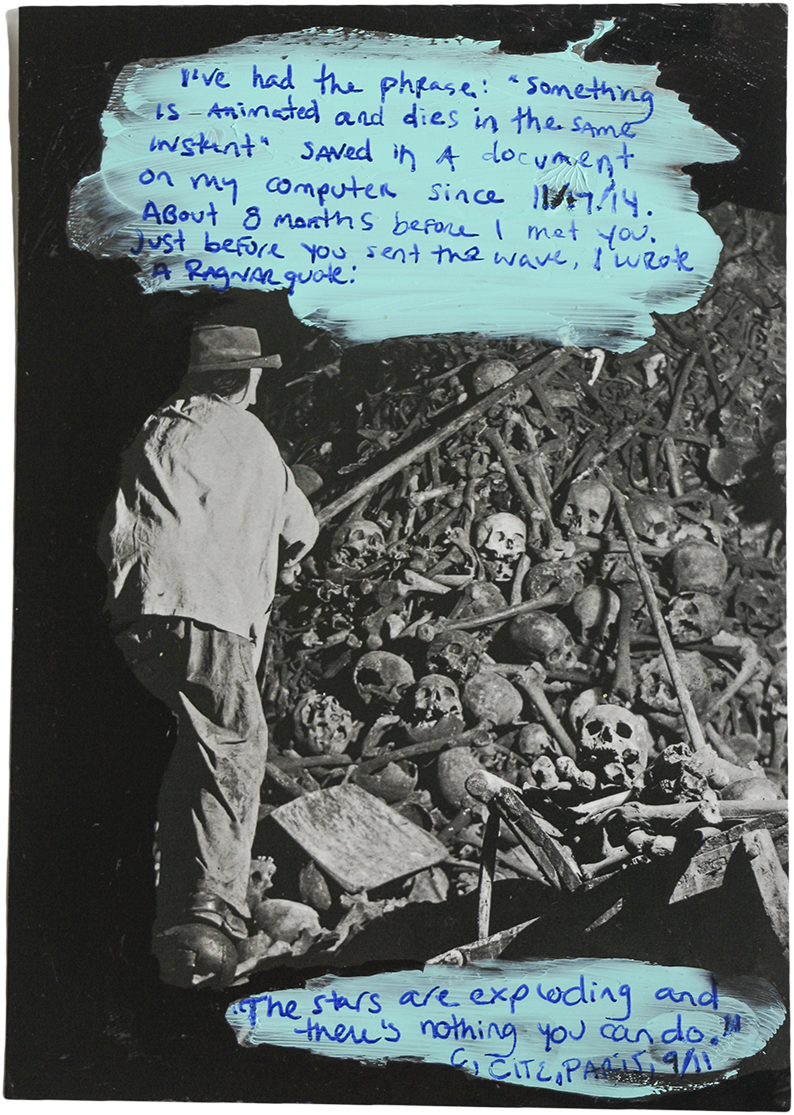 I've had the phrase: "Something
is Animated and dies in the same
instant" saved in a document
on my computer since 11/17/14.
About 8 months before I met you.
Just before you sent the wave, I wrote
A Ragnar quote:
"The stars are exploding and
there's nothing you can do."
C, CITE, PARIS, 9/11